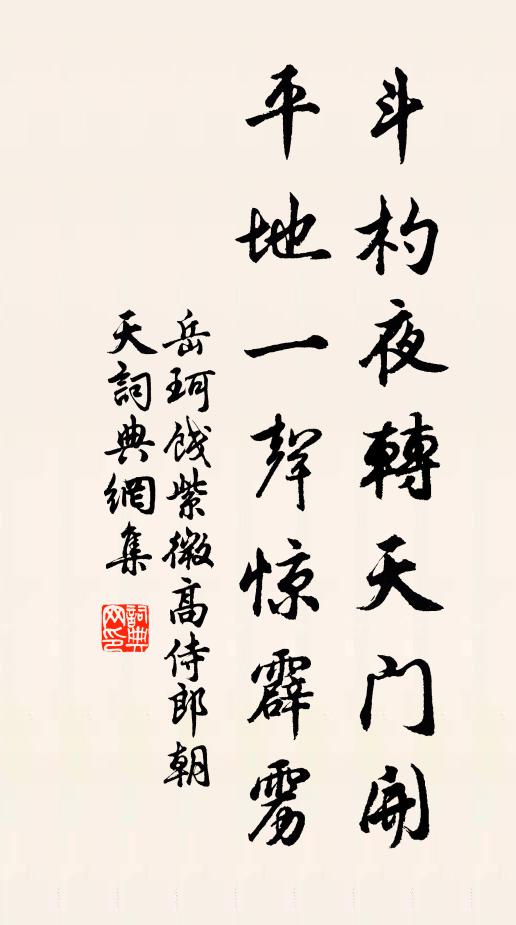 斗杓夜轉天门開
平地一聲惊霹雳
岳珂餞紫微高侍郎朝
天詞典網集
詞典网印